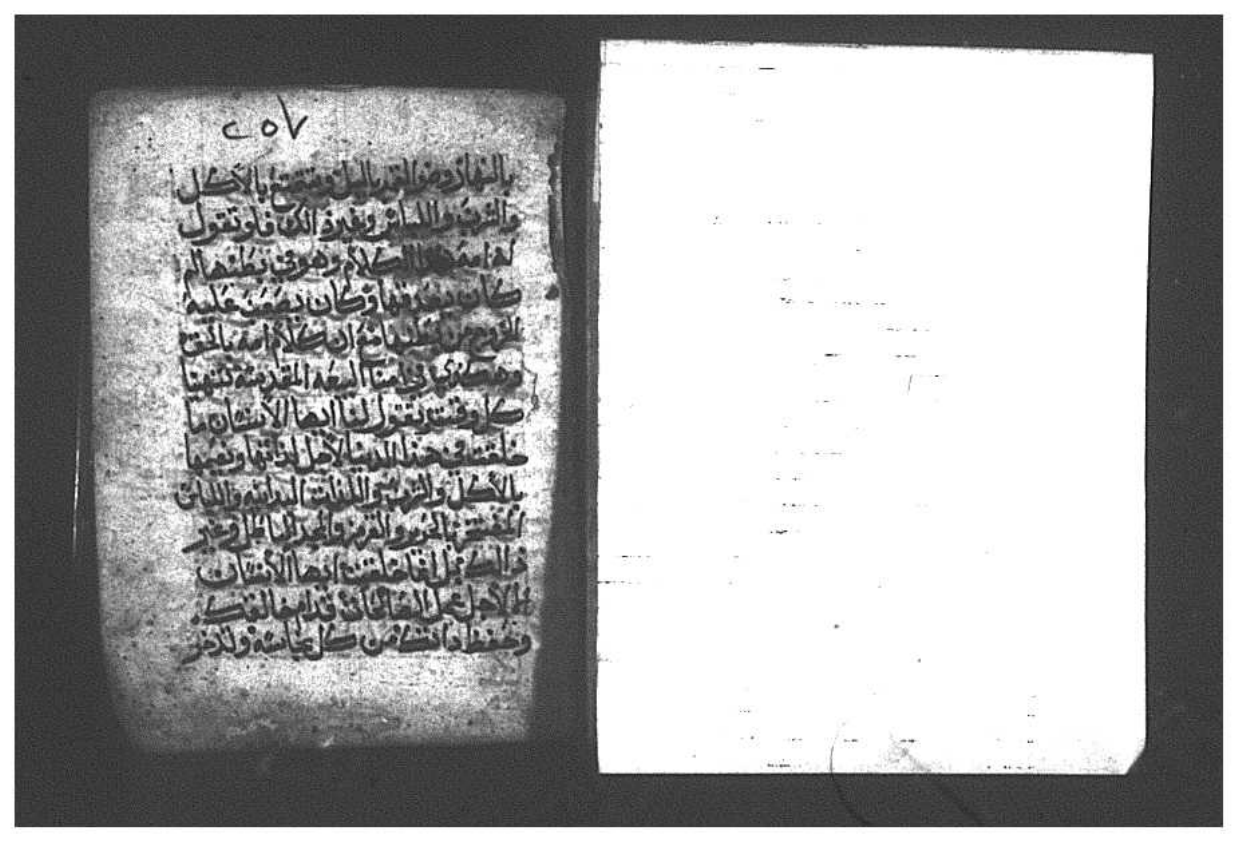 ٢٥٧
بالنهار وضو القمر بالليل ويتمتع بالاكل
والشرب واللباس وغير ذالك فلو تقول
له امه هذا الكلام وهو في بطنها لم
كان يعرفها وكان يصعب عليه
الخروج من بطنها مع ان كلام امه بالحق
وهكذي في امنا البيعه المقدسة تنهنا
كل وقت وتقول لنا ايها الانسان ما
خلقت في هذا الدنيا لاجل لذاتها ونعيمها
بالاكل والشرب واللذات البدانيه واللباس
المفتخر بالحرير والقرمز والمجد الباطل وغير
ذالك بل انما خلقت ايها الانسان
لاجل عمل الصالحات قدام خالقك
وتحفظ ذاتك من كل نجاسة ولا تدخر